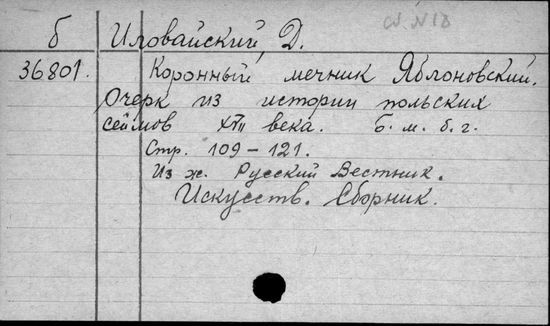 б Иловайский, Д.
36801. Коронный мечник Яблоновский.
Очерк из истории польских
сеймов XVII века. Б. м. б. г.
Стр. 109-121.
Из ж. Русский Вестник.
Искусств. Сборник.